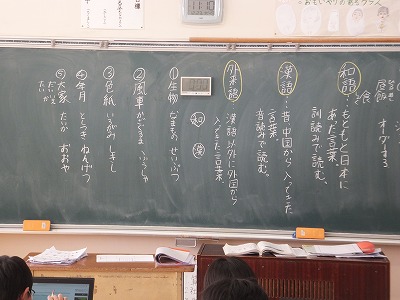 和語…もともと日本に
あった言葉。
訓読みで読む。
漢語…昔中国から入ってきた
言葉。
音読みで読む。
外来語…漢語以外に外国から
入ってきた言葉。
和 漢
①生物 なまもの せいぶつ
②風車 かざぐるま ふうしゃ
③色紙 いろがみ しきし
④年月 としつき ねんげつ
⑤大家 たいか おおや
オーダーする